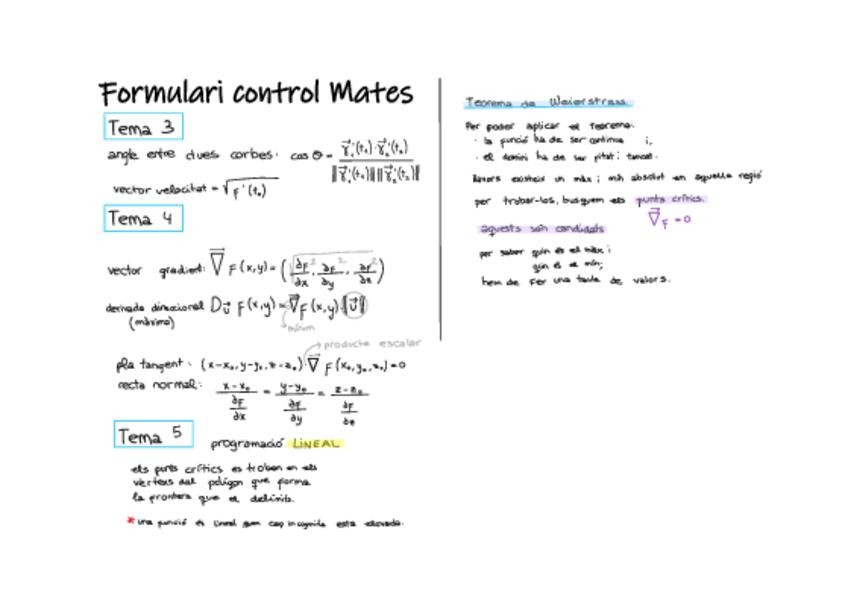 Formulari control Mates
Tema 3
angle entre dues corbes: cos θ = γ⃗₁'(t₀)·γ⃗₂'(t₀) / ||γ⃗₁'(t₀)|| ||γ⃗₂'(t₀)||
vector velocitat = √F'(t₀)
Tema 4
vector gradient: ∇⃗ F(x,y) = (∂F/∂x², ∂F/∂y², ∂F/∂z²)
derivada direccional D_u⃗ F(x,y) = ∇⃗F(x,y) ||u⃗||
(màxima)
mínim
producte escalar
pla tangent: (x-x₀, y-y₀, z-z₀)·∇⃗ F(x₀,y₀,z₀)=0
recta normal: (x-x₀)/(∂F/∂x) = (y-y₀)/(∂F/∂y) = (z-z₀)/(∂F/∂z)
Tema 5
programació LINEAL
els punts crítics es troben en els
vèrtexs del polígon que forma
la frontera que el delimita.
* una funció és lineal quan cap incognita esta elevada.
Teorema de Weierstrass
Per poder aplicar el teorema:
· la funció ha de ser contínua i,
· el domini ha de ser fitat i tancat.
llavors existeix un màx i mín absolut en aquella regió
per trobar-los, busquem els punts crítics.
∇⃗F = 0
aquests són candidats
per saber quin és el màx i
quin és el mín;
hem de fer una taula de valors.